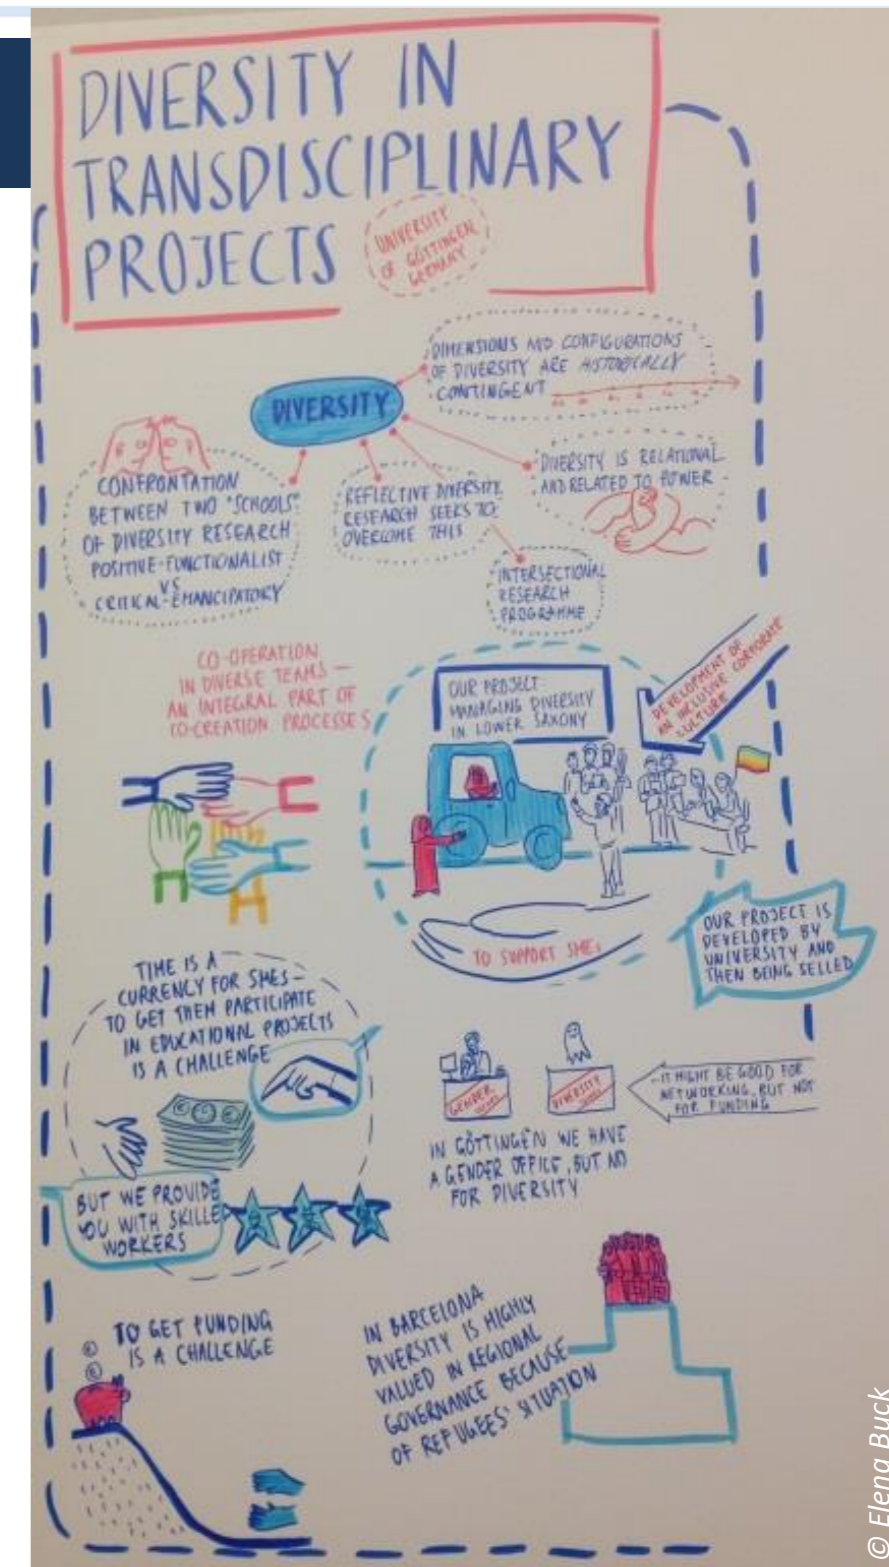 DIVERSITY IN
TRANSDISCIPLINARY
PROJECTS
UNIVERSITY
OF GÖTTINGEN
GERMANY
DIMENSIONS AND CONFIGURATIONS
OF DIVERSITY ARE HISTORICALLY
CONTINGENT
DIVERSITY
CONFRONTATION
BETWEEN TWO "SCHOOLS"
OF DIVERSITY RESEARCH
POSITIVE-FUNCTIONALIST
VS
CRITICAL-EMANCIPATORY
REFLECTIVE DIVERSITY
RESEARCH SEEKS TO
OVERCOME THIS
DIVERSITY IS RELATIONAL
AND RELATED TO POWER
INTERSECTIONAL
RESEARCH
PROGRAMME
CO-OPERATION
IN DIVERSE TEAMS –
AN INTEGRAL PART OF
CO-CREATION PROCESSES
OUR PROJECT:
MANAGING DIVERSITY
IN LOWER SAXONY
DEVELOPMENT OF
AN INCLUSIVE CORPORATE
CULTURE
TO SUPPORT SMEs
OUR PROJECT IS
DEVELOPED BY
UNIVERSITY AND
THEN BEING SELLED
TIME IS A
CURRENCY FOR SMES –
TO GET THEM PARTICIPATE
IN EDUCATIONAL PROJECTS
IS A CHALLENGE
BUT WE PROVIDE
YOU WITH SKILLED
WORKERS
GENDER
DIVERSITY
IT MIGHT BE GOOD FOR
NETWORKING, BUT NOT
FOR FUNDING
IN GÖTTINGEN WE HAVE
A GENDER OFFICE, BUT NO
FOR DIVERSITY
TO GET FUNDING
IS A CHALLENGE
IN BARCELONA
DIVERSITY IS HIGHLY
VALUED IN REGIONAL
GOVERNANCE BECAUSE
OF REFUGEES' SITUATION
© Elena Buck